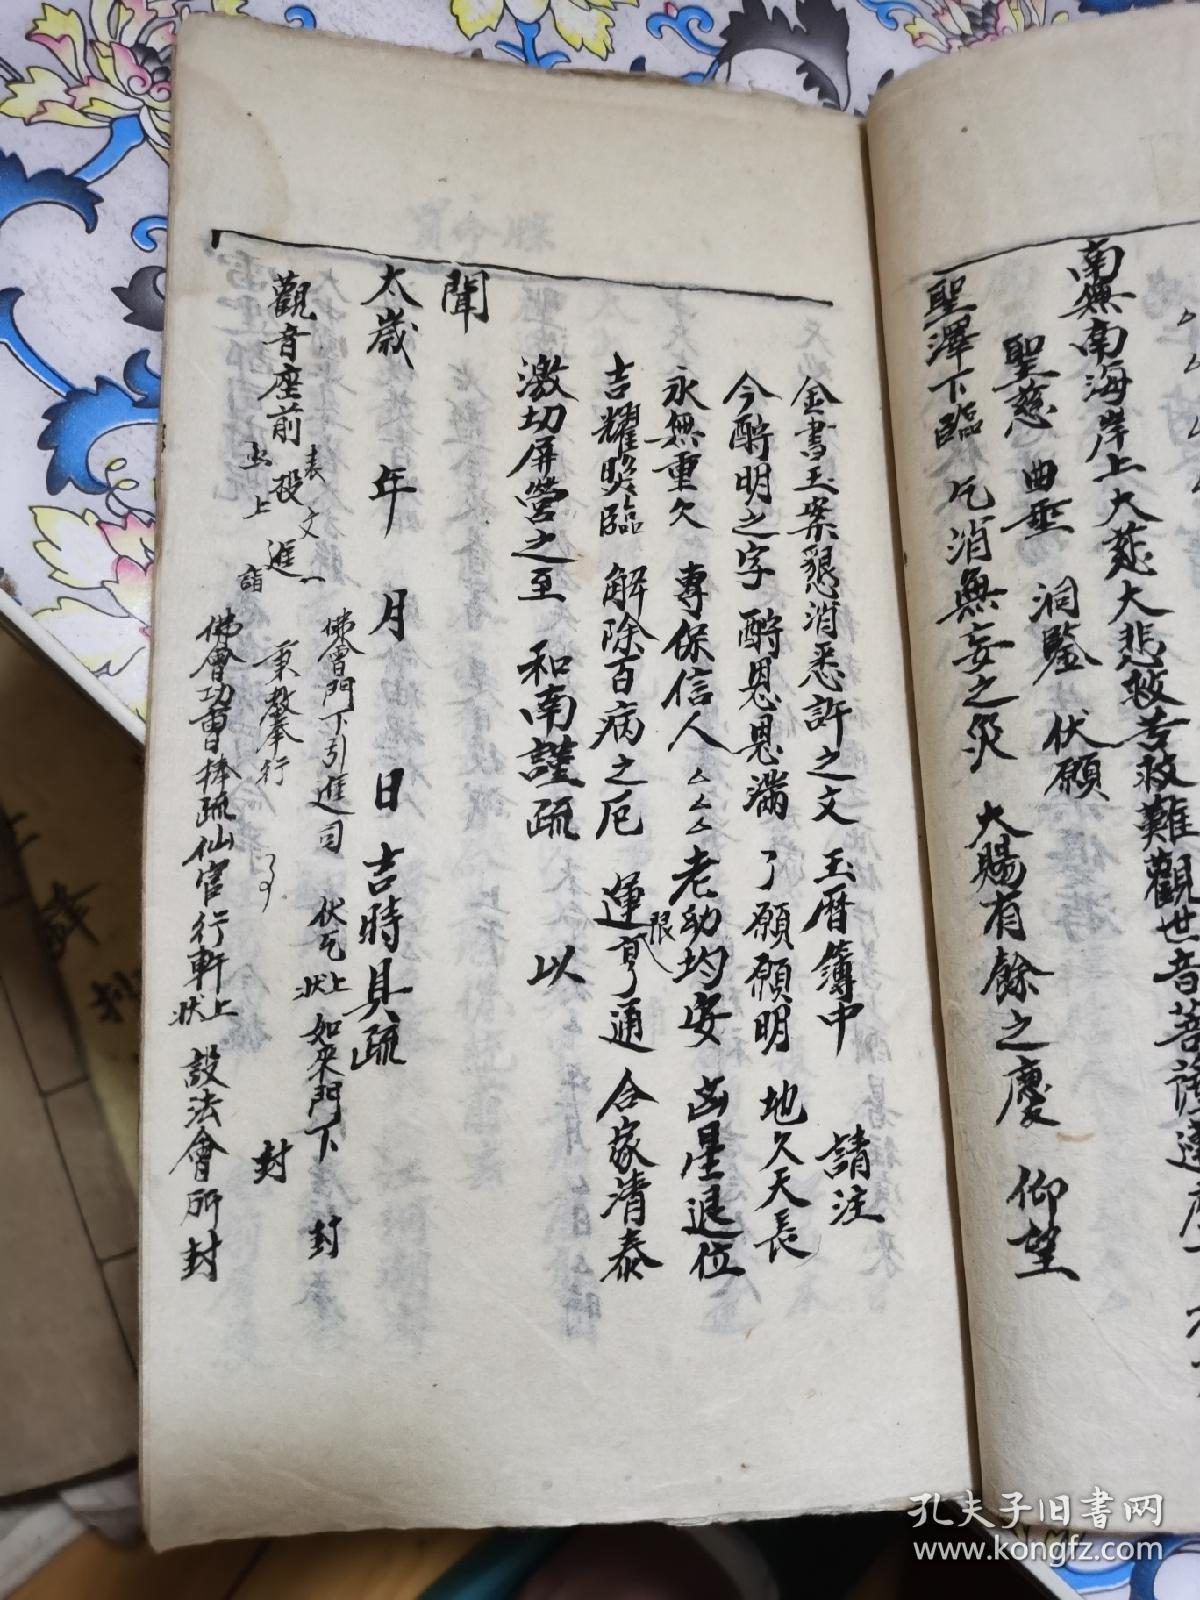 南無南海岸上大慈大悲救苦救難觀世音菩薩蓮座下
聖慈 曲垂 洞鑒 伏願
聖澤下臨 乞消無妄之災 大賜有餘之慶 仰望
金書玉案懇消悉許之文 玉曆簿中 請注
今酧明之字 酧恩恩滿 了願願明 地久天長
永無重欠 專保信人△△△老幼均安 凶星退位
吉耀照臨 解除百病之厄 運限亨通 合家清泰
激切屏營之至 和南謹疏 以
聞
太歲 年 月 日 吉時具疏
佛會門下引進司 伏乞狀上 如來門下 封
表文一
觀音座前 進
秉教奉行 封
上 詣
佛會功曹捧疏仙官行軒狀上 設法會所封
孔夫子旧书网
www.kongfz.com